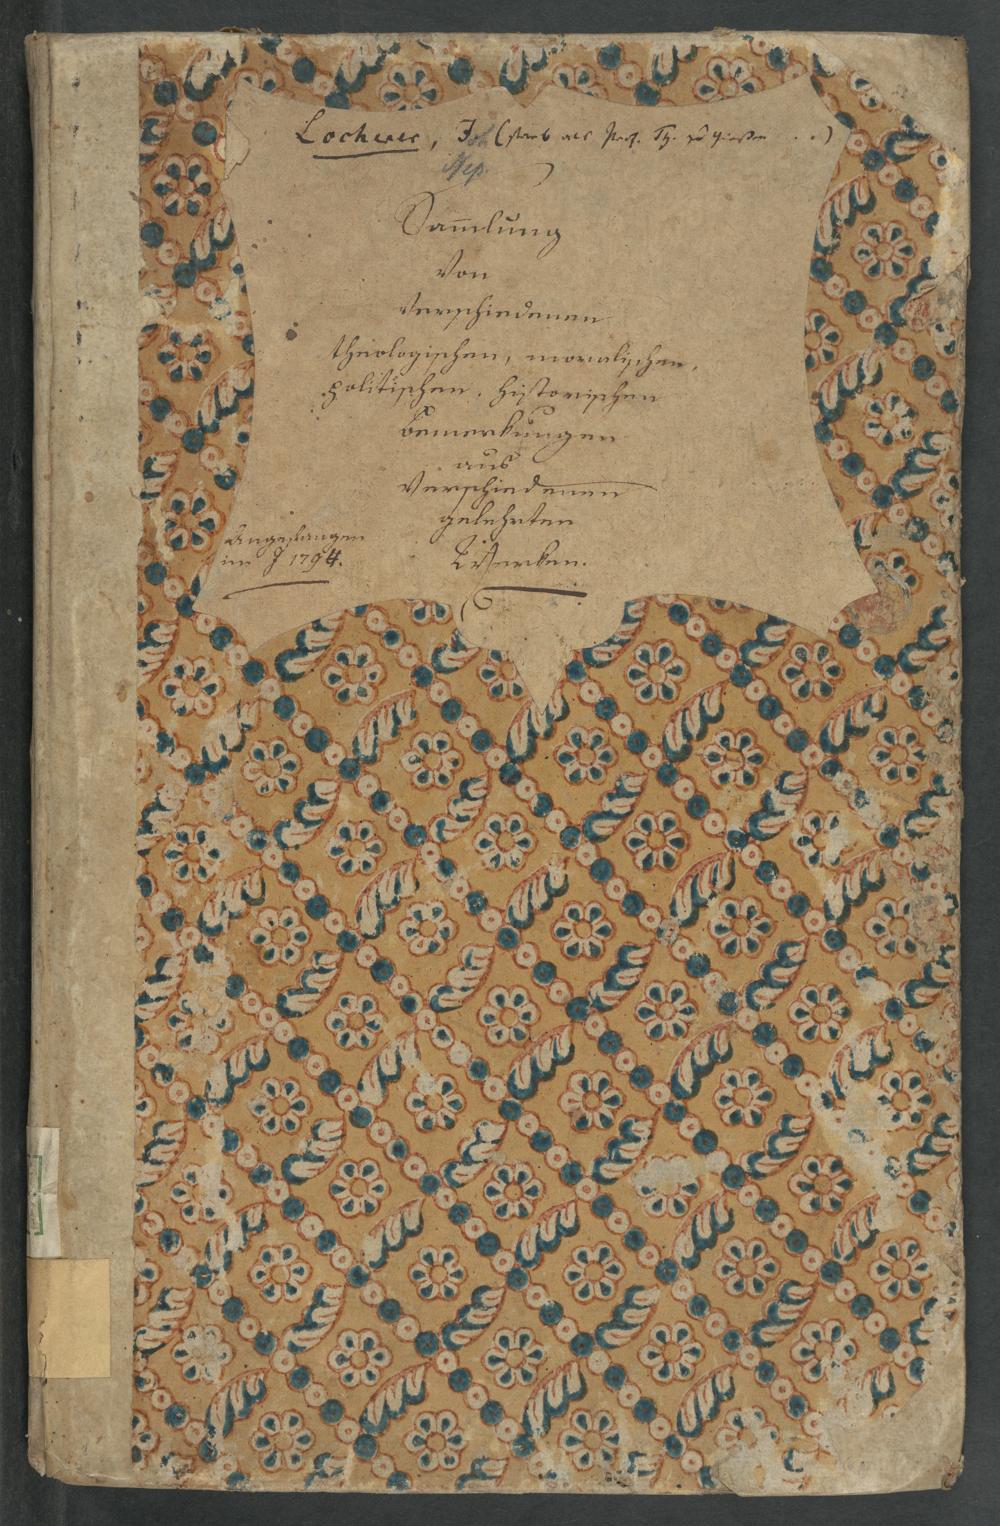 Locherer, J. (starb als Prof. Th. zu Gießen . . .)
Nep.
Sam̅lung
von
verschiedenen
theologischen, moralischen,
politischen, historischen
Bemerkungen
aus
verschiedenen
gelehrten
Werken.
Angefangen
im J 1794.